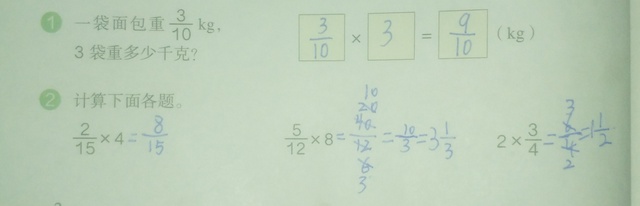 1 一袋面包重 3/10 kg,
3 袋重多少千克?
3/10 × 3 = 9/10 (kg)
2 计算下面各题。
2/15 × 4 = 8/15
5/12 × 8 = 40/12 20/6 10/3 = 10/3 = 3 1/3
2 × 3/4 = 6/4 3/2 = 1 1/2